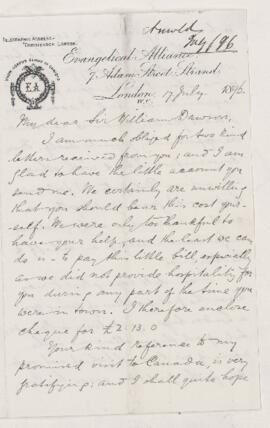 Arnold
July/96
TELEGRAPHIC ADDRESS—
Evangelical Alliance
7 Adam Street, Strand,
London, 17 July 1896.
W.C.
E.A.
My dear Sir William Dawson,
I am much obliged for two kind
letters received from you; and I am
glad to have the little account you
send me. We certainly are unwilling
that you should bear this cost your-
self. We were only too thankful to
have your help, and the least we can
do is to pay this little bill especially
as we did not provide hospitality for
you during any part of the time you
were in town. I therefore enclose
cheque for £2.13.0
Your kind reference to my
promised visit to Canada, is very
gratifying; and I shall quite hope